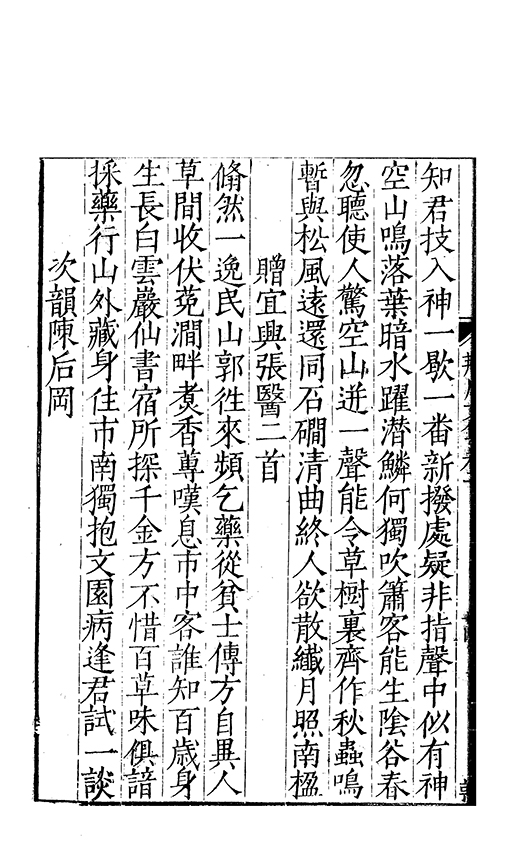 知君技入神一歇一番新撥處疑非指聲中似有神
空山鳴落葉暗水躍潛鱗何獨吹簫客能生陰谷春
忽聽使人驚空山迸一聲能令草樹裏齊作秋蟲鳴
暫與松風遠還同石磵清曲終人欲散纖月照南楹
贈宜興張醫二首
翛然一逸民山郭徃來頻乞藥從貧士傳方自異人
草間收伏菟澗畔煑香蓴嘆息市中客誰知百歲身
生長白雲巖仙書宿所探千金方不惜百草味俱諳
採藥行山外藏身住市南獨抱文園病逢君試一談
次韻陳后岡